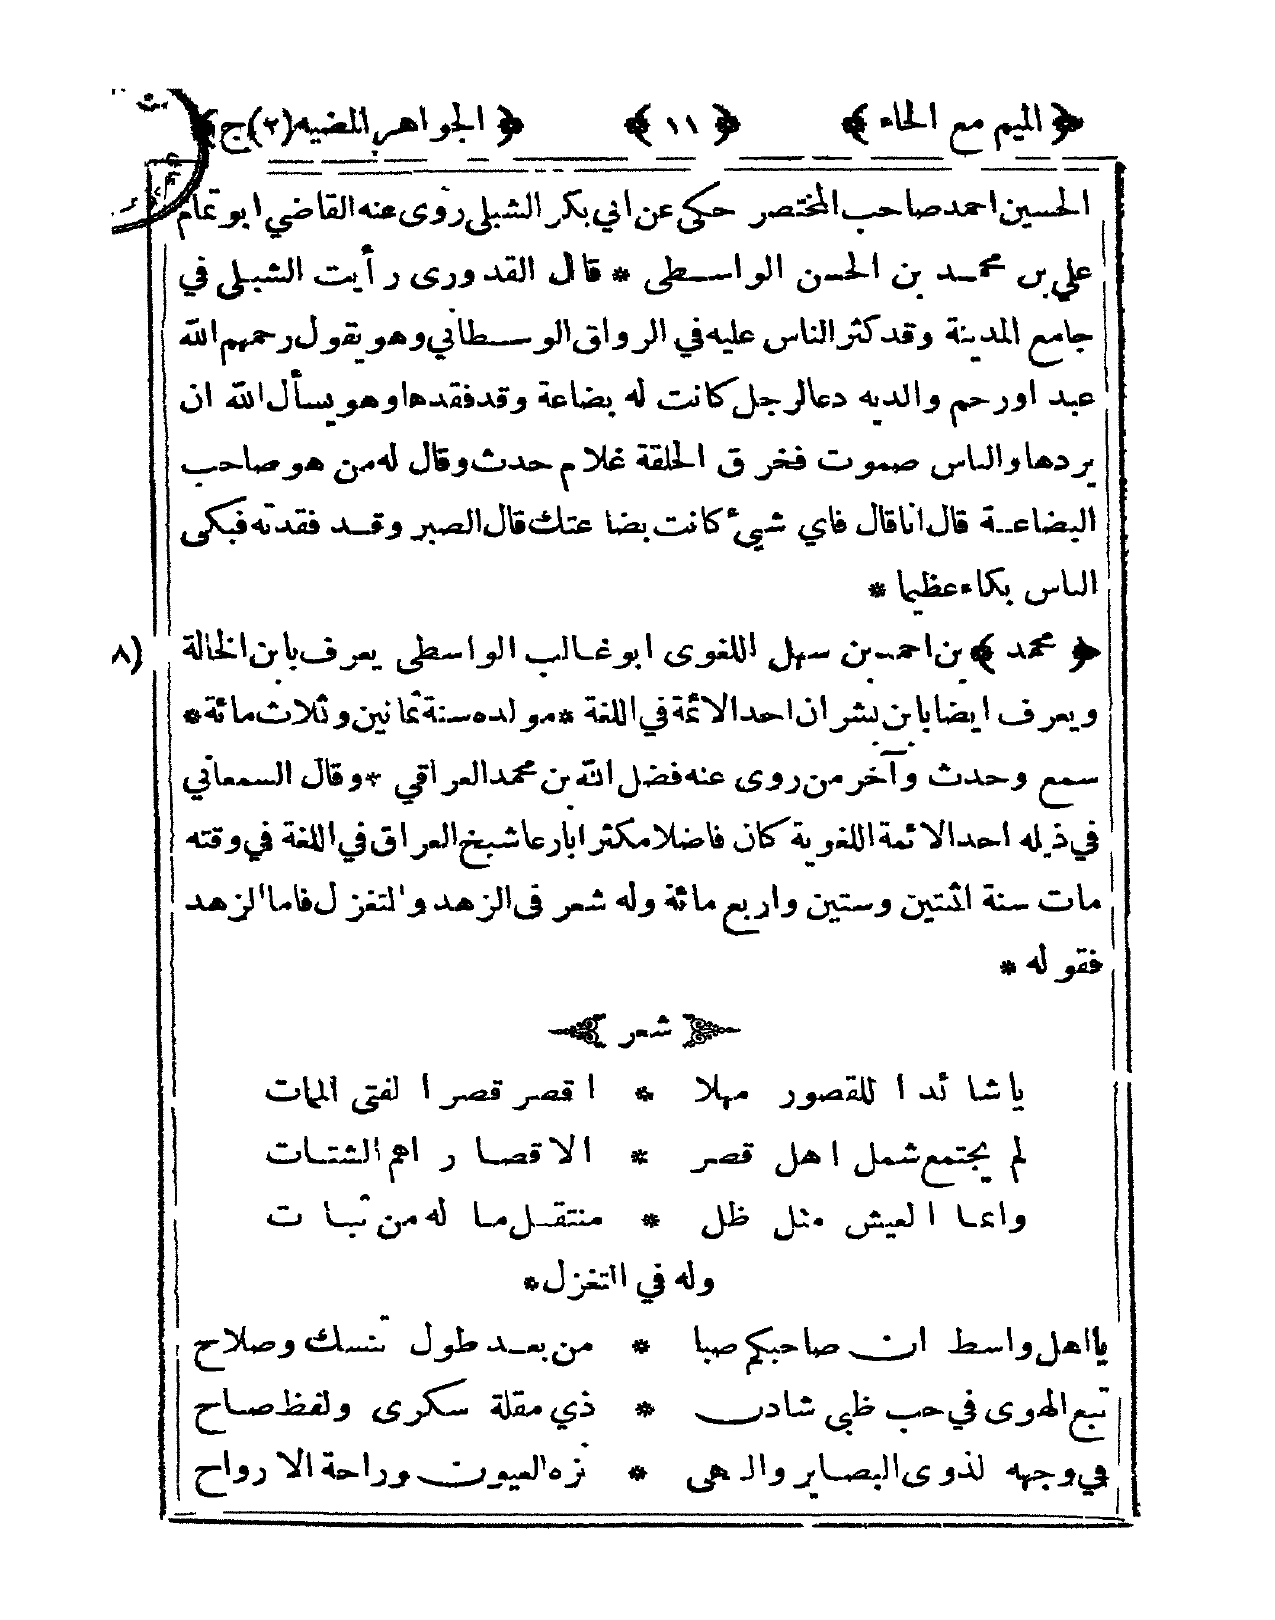 ﴿ الميم مع الحاء ﴾ ﴿ ١١ ﴾ ﴿ الجواهر المضيه(٢)ج ﴾
الحسين احمد صاحب المختصر حكى عن ابي بكر الشبلى روى عنه القاضي ابو تمام
علي بن محمد بن الحسن الواسطى * قال القدورى رأيت الشبلى في
جامع المدينة وقد كثر الناس عليه في الرواق الوسطاني وهو يقول رحمهم الله
عبد اورحم والديه دعا لرجل كانت له بضاعة وقد فقدها وهو يسأل الله ان
يردها والناس صموت فخرق الحلقة غلام حدث وقال له من هو صاحب
البضاعة قال انا قال فاي شيئ كانت بضاعتك قال الصبر وقد فقدته فبكى
الناس بكاء عظيما *
﴿ محمد ﴾ بن احمد بن سهل اللغوى ابو غالب الواسطى يعرف بابن الخالة
(٨
ويعرف ايضا بابن بشران احد الائمة في اللغة * مولده سنة ثمانين وثلاث مائة *
سمع وحدث وآخر من روى عنه فضل الله بن محمد العراقي * وقال السمعاني
في ذيله احد الائمة اللغوية كان فاضلا مكثرا بارعا شيخ العراق في اللغة في وقته
مات سنة اثنتين وستين واربع مائة وله شعر فى الزهد والتغزل فاما الزهد
فقوله *
شعر
يا شائدا للقصور مهلا * اقصر قصر الفتى الممات
لم يجتمع شمل اهل قصر * الا قصارا هم الشتات
وانما العيش مثل ظل * منتقل ما له من ثبات
وله في التغزل *
يا اهل واسط ان صاحبكم صبا * من بعد طول تنسك وصلاح
تبع الهوى في حب ظبي شادن * ذي مقلة سكرى ولفظ صاح
في وجهه لذوى البصاير والهى * نزه العيون وراحة الارواح